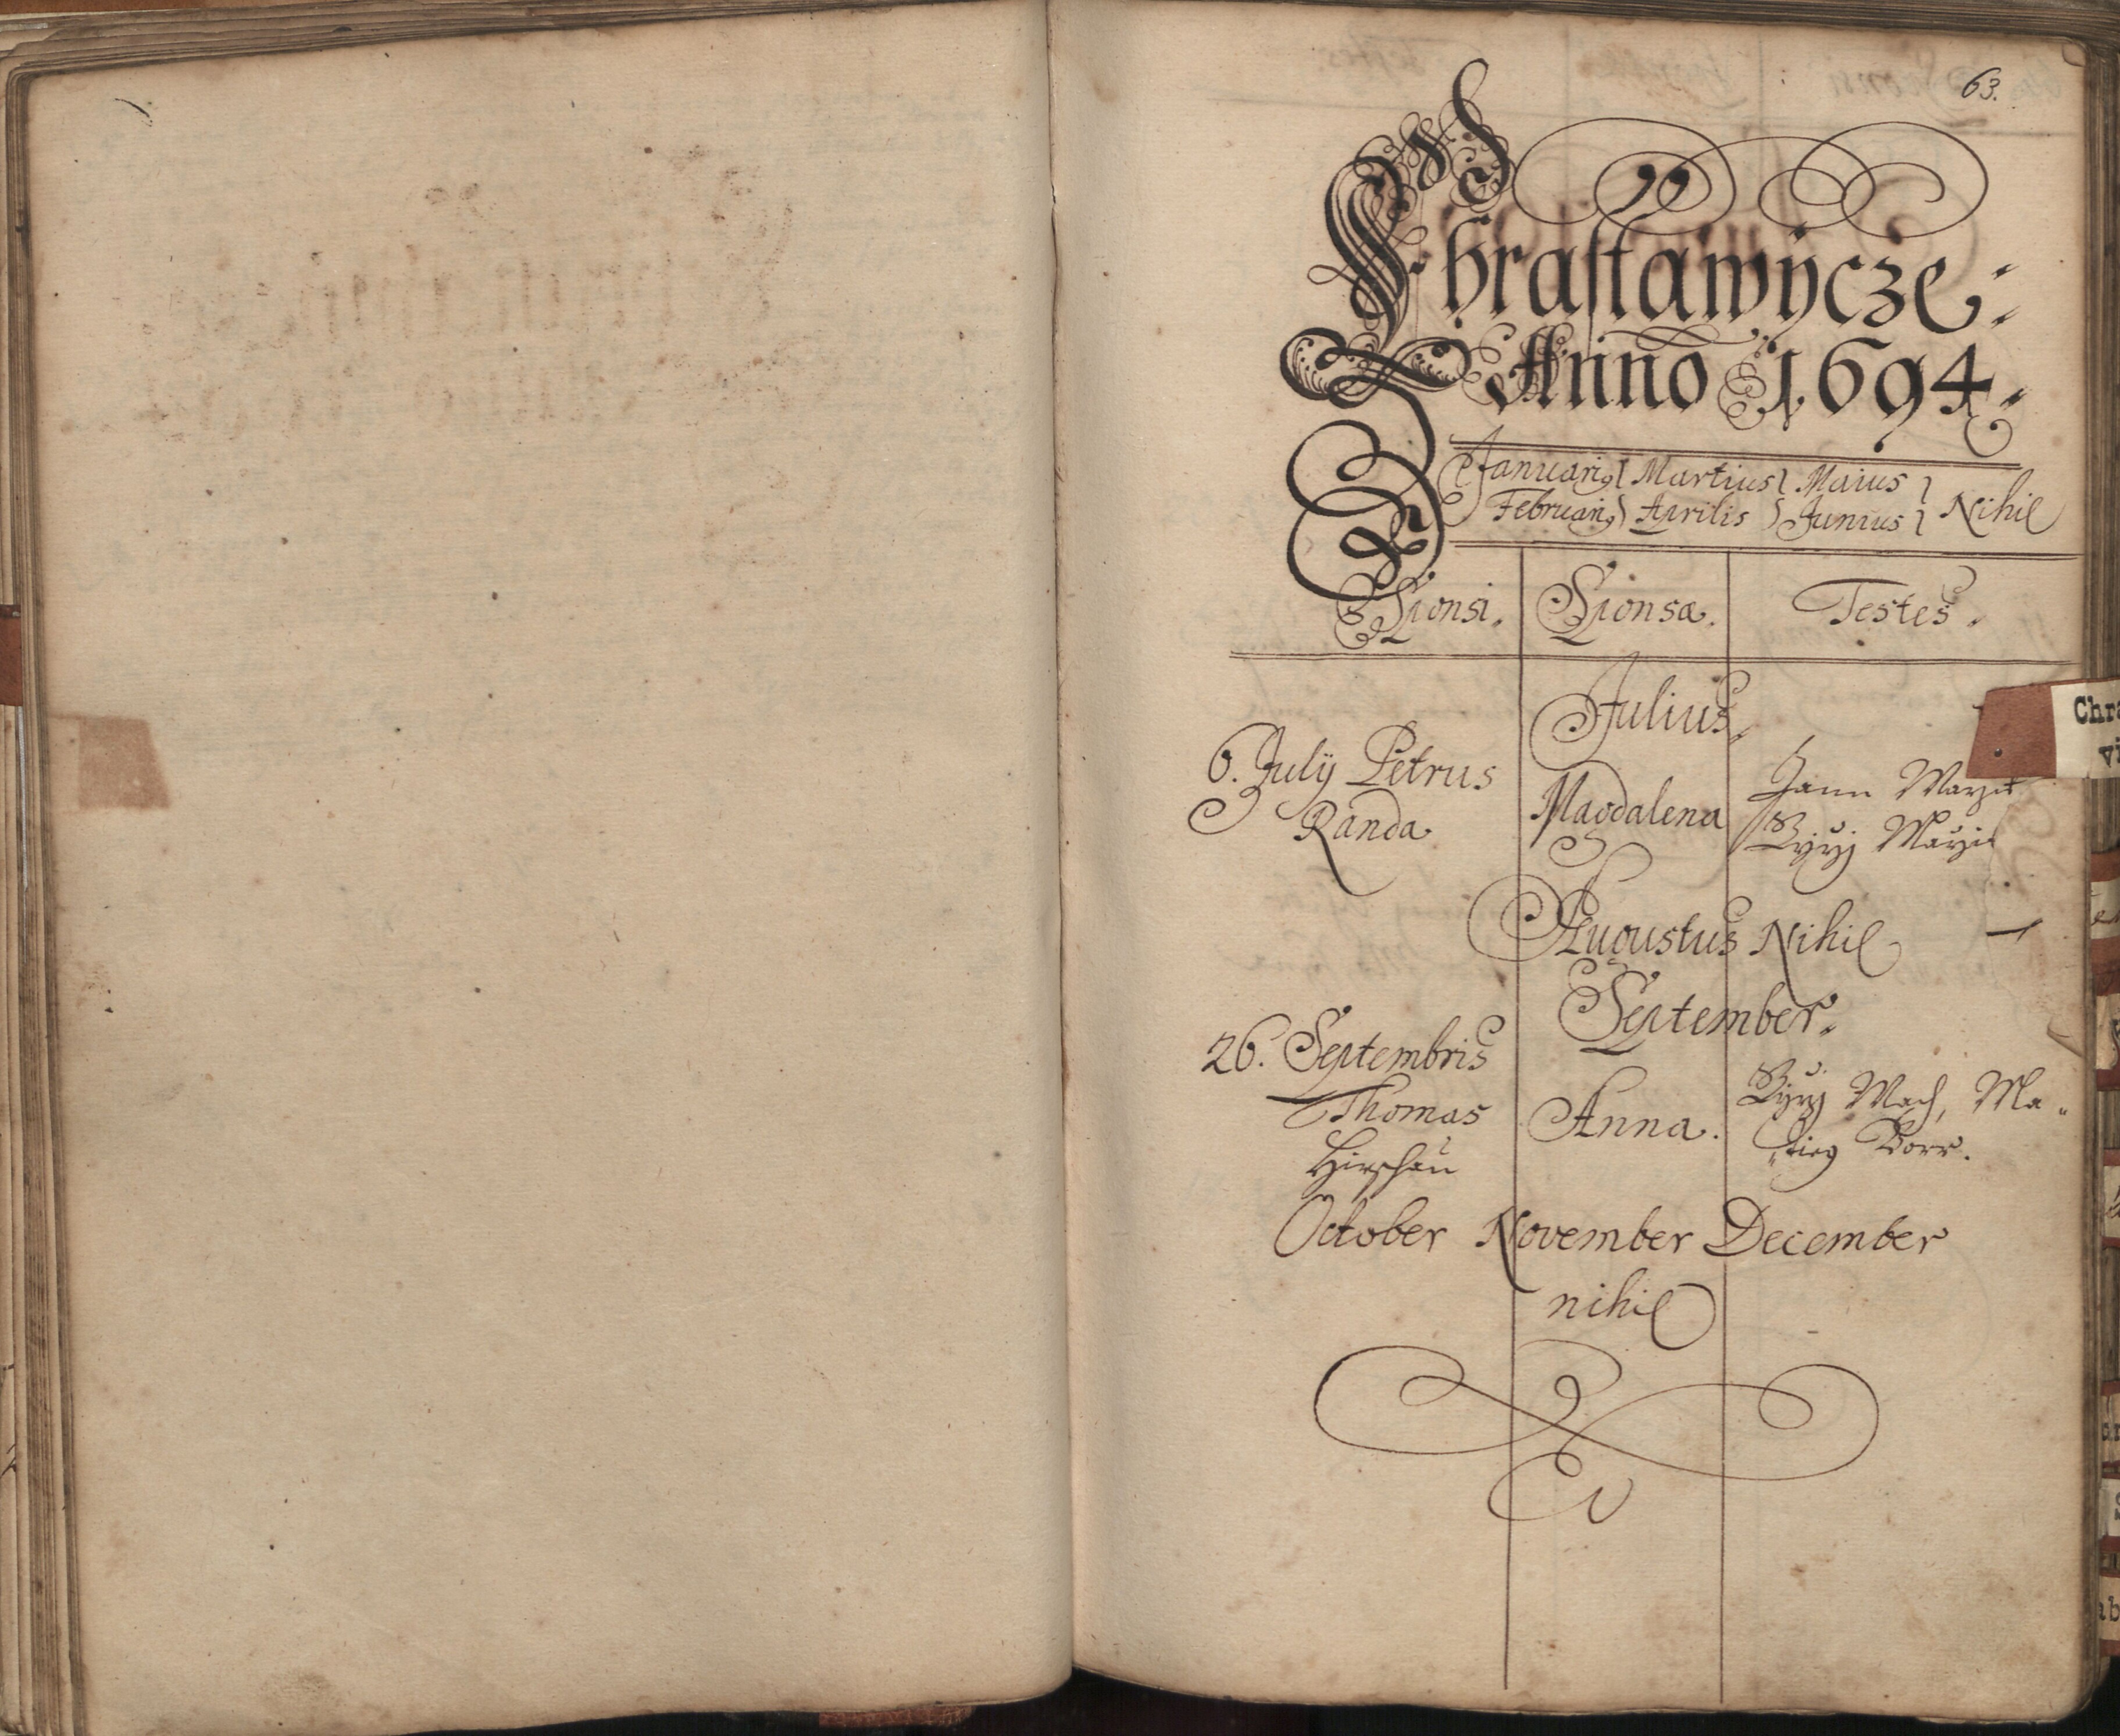 63.
Chrastawÿcze
Anno 1694
Januari9 Martius Maius
Februari9 Aprilis Junius Nihil
Sponsi. Sponsa. Testes.
Julius
6. Julÿ Petrus
Randa
Magdalena
Jann
Augustus Nihil
September.
26. Septembris
Thomas
Anna.
Mach, Ma
October November December
nihil
Chra
vi